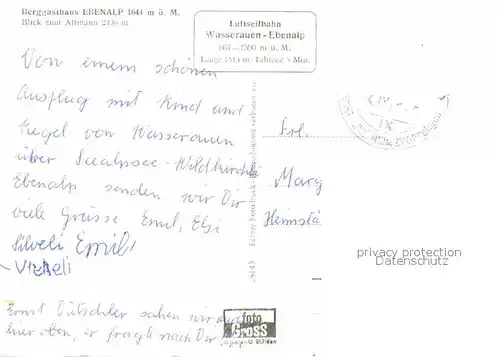 Berggasthaus EBENALP 1644 m ü. M.
Blick zum Altmann 2436 m
Luftseilbahn
Wasserauen - Ebenalp
867-1590 m ü. M.
Fahrzeit 5 Min.
Von einem schönen
Ausflug mit Kind und
Kegel von Wasserauen
über Seealpsee - Wildkirchli
Ebenalp senden wir Dir
viele Grüsse Emil, Elsi
Silveli Emil
Vreneli
Ernst Dütschler sahen wir auch
hier oben, er fragte nach Dir!
Frl.
Mary
Heimstä
foto
Gross
St. Gallen
privacy protection
Datenschutz